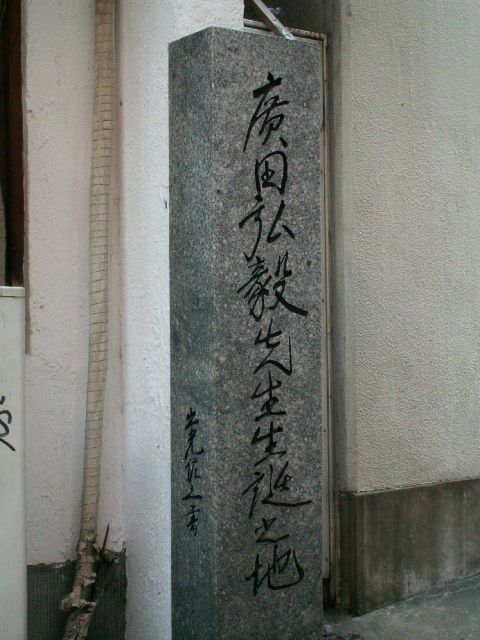 廣田弘毅先生生誕之地